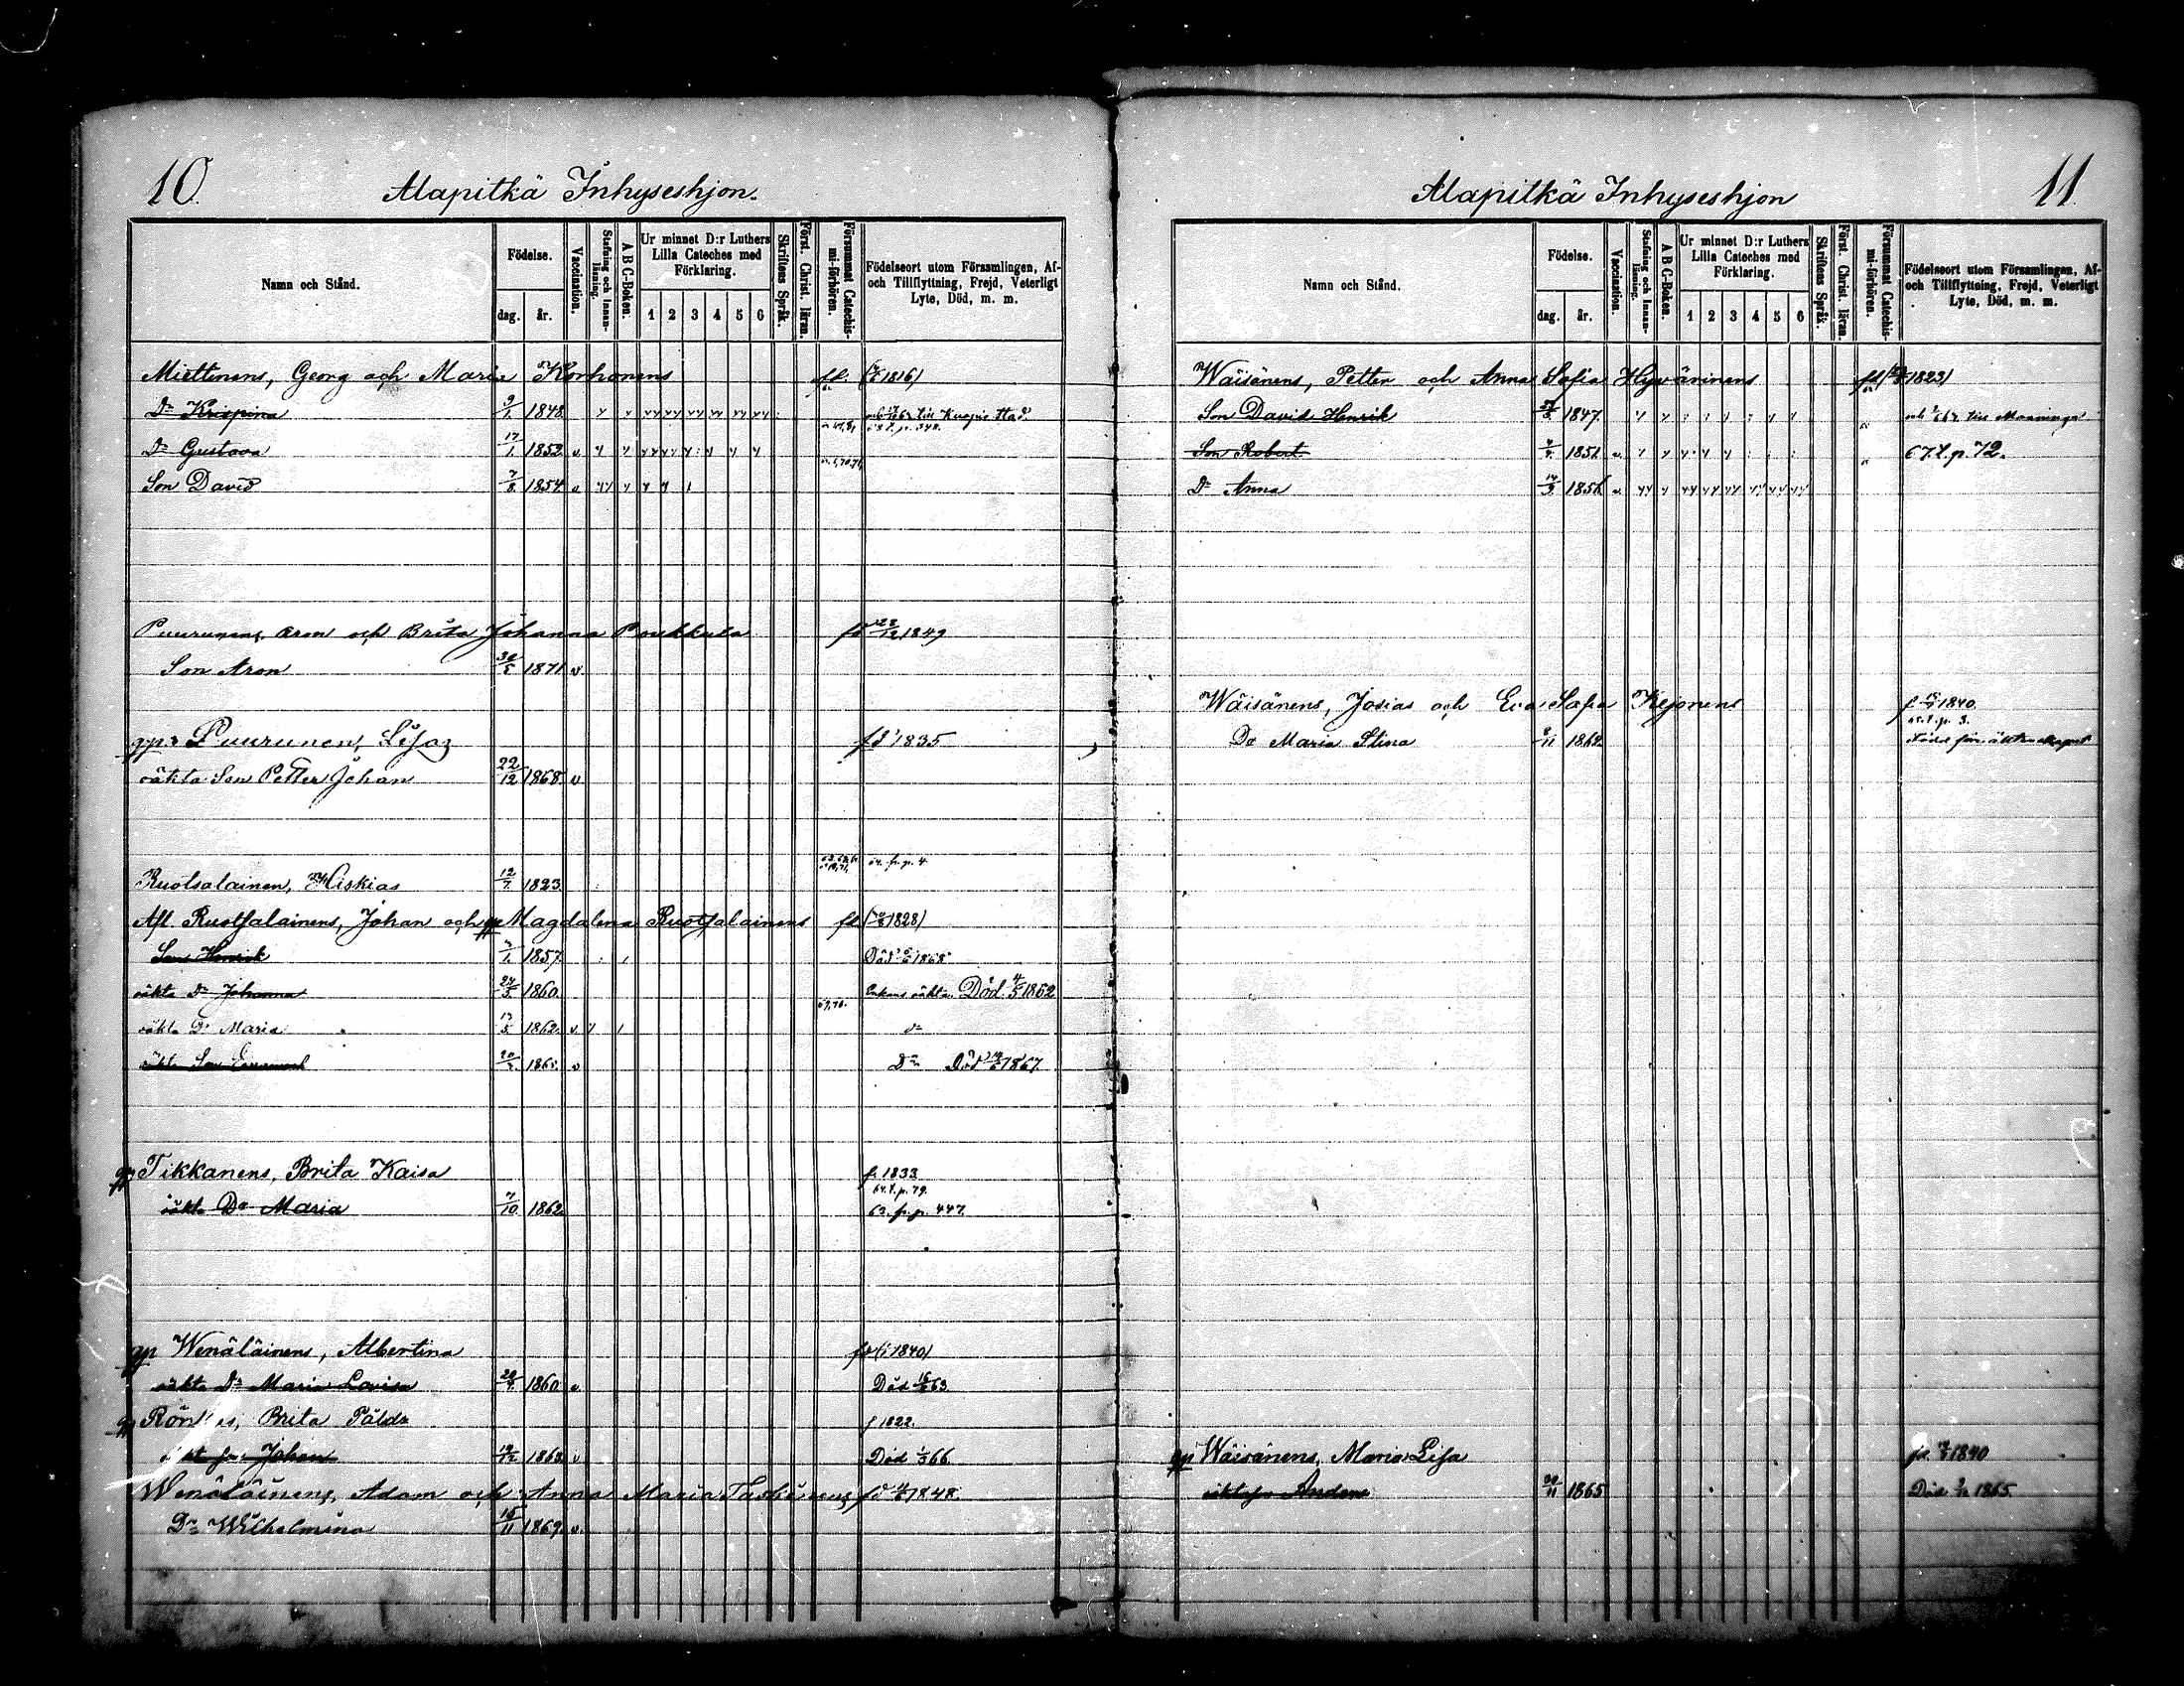 10.
Alapitkä Inhyseshjon.
Namn och Stånd.
Födelse.
dag.
år.
Vaccination.
Stafning och Innan-läsning.
A B C-Boken.
Ur minnet D:r Luthers
Lilla Cateches med
Förklaring.
1 2 3 4 5 6
Skriftens Språk.
Först. Christ. läran.
Försummat Catechis-mi-förhören.
Födelseort utom Församlingen, Af-
och Tillflyttning, Frejd, Veterligt
Lyte, Död, m. m.
Miettinens, Georg och Maria Korhonens 1816)
Dr Krispina 9/1 1848. till Kuopio stad.
Dr Gustava 17/1 1852 v
Son David 7/8 1854 v
Puurunens, Aron och Brita Johanna Poukkula fd 28/12 1849
Son Aron 30/5 1871 v.
Puurunen, Lisa fd 1835
oäkta Son Petter Johan 22/12 1868 v
64. fr. p. 4.
Ruotsalainen, Hiskias 12/7 1823
Afl. Ruotsalainens, Johan och Magdalena Ruotsalainens 1828)
Son Henrik 1857. Död 1868
oäkta Dr Johanna 1860. Enkans oäkta. Död. 1862
67,70.
oäkta Dr Maria 1862. v
oäkta Son Emanuel 1865. v Dr Död 1867.
Tikkanens, Brita Kaisa f. 1833
64. t. p. 79.
oäkta Dr Maria 7/10 1862 63. fr. p. 447.
gp Wenäläinens, Albertina 1840)
oäkta Dr Maria Lovisa 1860 v. Död 63.
Brita f 1822.
Johan 1863. v Död 66.
Wenäläinens, Adam och Anna Maria 1848.
Dr Wilhelmina 15/11 1869. v.
11.
Alapitkä Inhyseshjon
Namn och Stånd.
Födelse.
dag.
år.
Vaccination.
Stafning och Innan-läsning.
A B C-Boken.
Ur minnet D:r Luthers
Lilla Cateches med
Förklaring.
1 2 3 4 5 6
Skriftens Språk.
Först. Christ. läran.
Försummat Catechis-mi-förhören.
Födelseort utom Församlingen, Af-
och Tillflyttning, Frejd, Veterligt
Lyte, Död, m. m.
Wäisänens, Petter och Anna Sofia Hyvärinens 1823)
Son David Henrik 1847. till Maaninga
Son Robert 1851 v. 67. t. p. 72.
Dr Anna 1856 v.
Wäisänens, Josias och Eva Sofia Kejonens 1840.
65. t. p. 3.
Dr Maria Stina 1862
gp Wäisänens, Maria Lisa 1840
Anders 1865 Död 1865.